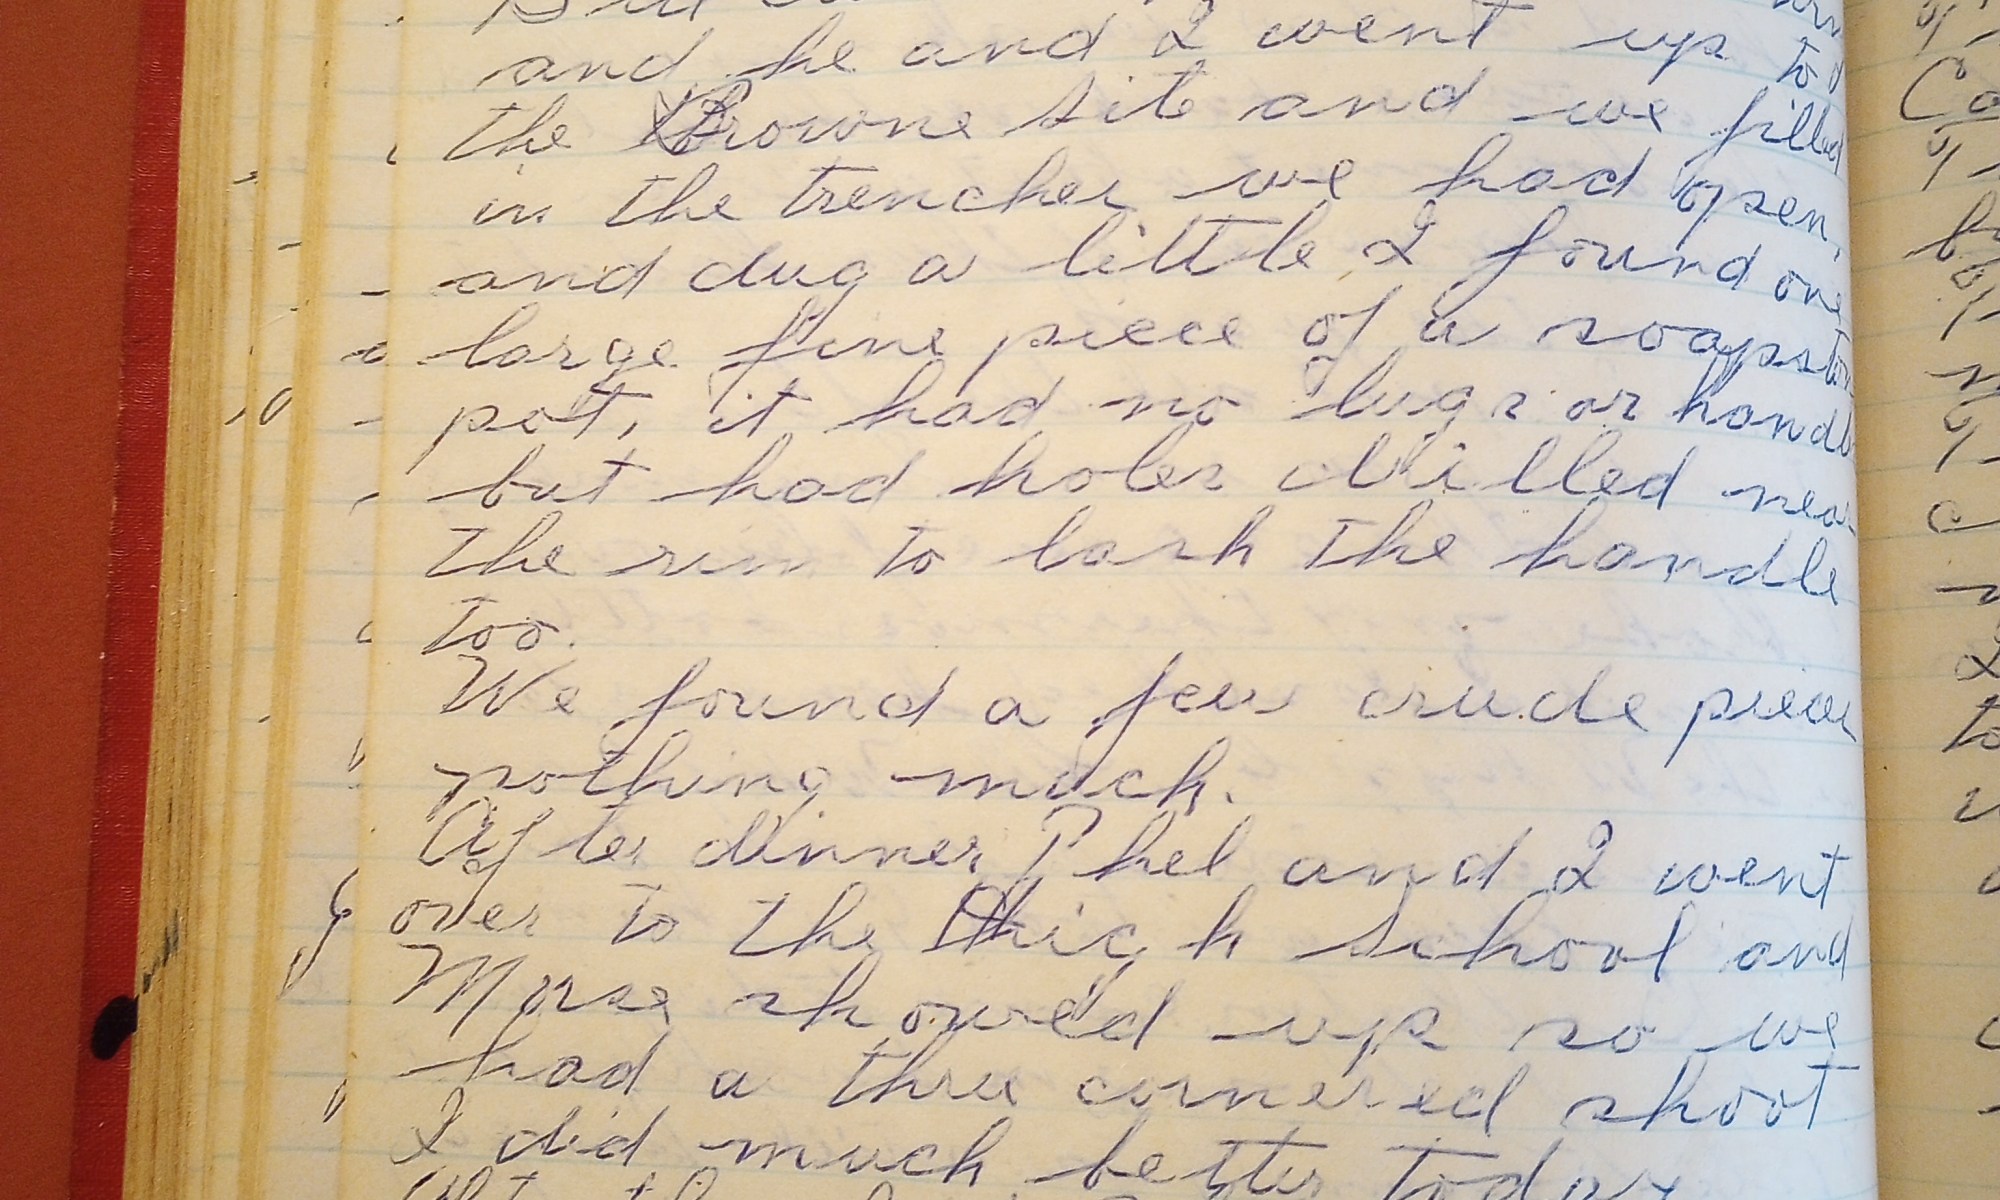 and he and I went up to
the Browne site and we filled
in the trenches we had open,
and dug a little I found one
large fine piece of a soapstone
pot, it had no lugs or handle
but had holes drilled near
the rim to lash the handle
too.
We found a few crude pieces
nothing much.
After dinner Phel and I went
over to the High School and
Morse showed up so we
had a three cornered shoot
I did much better today